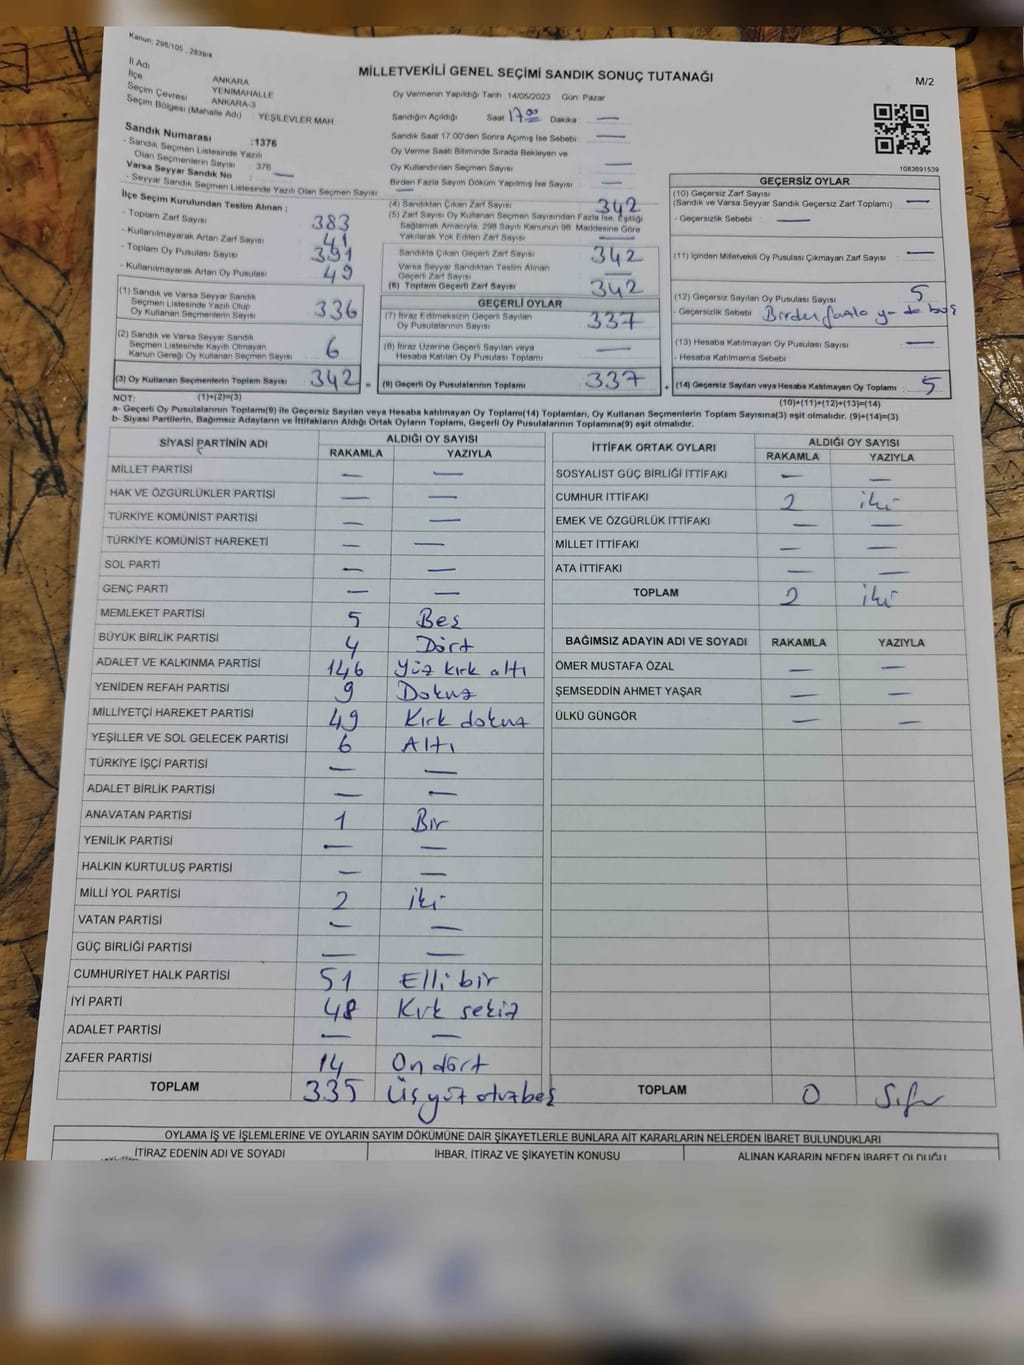 Kanun: 298/105 , 2839/4
MİLLETVEKİLİ GENEL SEÇİMİ SANDIK SONUÇ TUTANAĞI
M/2
İl Adı
İlçe ANKARA
Seçim Çevresi YENİMAHALLE
Seçim Bölgesi (Mahalle Adı) ANKARA-3
: YEŞİLEVLER MAH
Sandık Numarası :1376
- Sandık Seçmen Listesinde Yazılı
Olan Seçmenlerin Sayısı : 376
Varsa Seyyar Sandık No : —
- Seyyar Sandık Seçmen Listesinde Yazılı Olan Seçmen Sayısı : —
Oy Vermenin Yapıldığı Tarih : 14/05/2023 Gün: Pazar
Sandığın Açıldığı Saat 17.00 Dakika : —
Sandık Saat 17.00'den Sonra Açılmış İse Sebebi : —
Oy Verme Saati Bitiminde Sırada Bekleyen ve
Oy Kullandırılan Seçmen Sayısı : —
Birden Fazla Sayım Döküm Yapılmış İse Sayısı : —
1083691539
İlçe Seçim Kurulundan Teslim Alınan ;
- Toplam Zarf Sayısı : 383
- Kullanılmayarak Artan Zarf Sayısı : 41
- Toplam Oy Pusulası Sayısı : 391
- Kullanılmayarak Artan Oy Pusulası : 49
(1) Sandık ve Varsa Seyyar Sandık
Seçmen Listesinde Yazılı Olup
Oy Kullanan Seçmenlerin Sayısı : 336
(2) Sandık ve Varsa Seyyar Sandık
Seçmen Listesinde Kayıtlı Olmayan
Kanun Gereği Oy Kullanan Seçmen Sayısı : 6
(3) Oy Kullanan Seçmenlerin Toplam Sayısı : 342 =
(4) Sandıktan Çıkan Zarf Sayısı : 342
(5) Zarf Sayısı Oy Kullanan Seçmen Sayısından Fazla İse, Eşitliği
Sağlamak Amacıyla, 298 Sayılı Kanunun 98. Maddesine Göre
Yakılarak Yok Edilen Zarf Sayısı : —
Sandıkta Çıkan Geçerli Zarf Sayısı : 342
Varsa Seyyar Sandıktan Teslim Alınan
Geçerli Zarf Sayısı : —
(6) Toplam Geçerli Zarf Sayısı : 342
GEÇERLİ OYLAR
(7) İtiraz Edilmeksizin Geçerli Sayılan
Oy Pusulalarının Sayısı : 337
(8) İtiraz Üzerine Geçerli Sayılan veya
Hesaba Katılan Oy Pusulası Toplamı : —
(9) Geçerli Oy Pusulalarının Toplamı : 337 +
GEÇERSİZ OYLAR
(10) Geçersiz Zarf Sayısı
(Sandık ve Varsa Seyyar Sandık Geçersiz Zarf Toplamı) : —
- Geçersizlik Sebebi : —
(11) İçinden Milletvekili Oy Pusulası Çıkmayan Zarf Sayısı : —
(12) Geçersiz Sayılan Oy Pusulası Sayısı : 5
- Geçersizlik Sebebi : Birden fazla ya da boş
(13) Hesaba Katılmayan Oy Pusulası Sayısı : —
- Hesaba Katılmama Sebebi
(14) Geçersiz Sayılan veya Hesaba Katılmayan Oy Toplamı : 5
NOT: (1)+(2)=(3)
(10)+(11)+(12)+(13)=(14)
a- Geçerli Oy Pusulalarının Toplamı(9) ile Geçersiz Sayılan veya Hesaba katılmayan Oy Toplamı(14) Toplamları, Oy Kullanan Seçmenlerin Toplam Sayısına(3) eşit olmalıdır. (9)+(14)=(3)
b- Siyasi Partilerin, Bağımsız Adayların ve İttifakların Aldığı Ortak Oyların Toplamı, Geçerli Oy Pusulalarının Toplamına(9) eşit olmalıdır.
SİYASİ PARTİNİN ADI ALDIĞI OY SAYISI
RAKAMLA YAZIYLA
MİLLET PARTİSİ — —
HAK VE ÖZGÜRLÜKLER PARTİSİ — —
TÜRKİYE KOMÜNİST PARTİSİ — —
TÜRKİYE KOMÜNİST HAREKETİ — —
SOL PARTİ — —
GENÇ PARTİ — —
MEMLEKET PARTİSİ 5 Beş
BÜYÜK BİRLİK PARTİSİ 4 Dört
ADALET VE KALKINMA PARTİSİ 146 Yüz kırk altı
YENİDEN REFAH PARTİSİ 9 Dokuz
MİLLİYETÇİ HAREKET PARTİSİ 49 Kırk dokuz
YEŞİLLER VE SOL GELECEK PARTİSİ 6 Altı
TÜRKİYE İŞÇİ PARTİSİ — —
ADALET BİRLİK PARTİSİ — —
ANAVATAN PARTİSİ 1 Bir
YENİLİK PARTİSİ — —
HALKIN KURTULUŞ PARTİSİ — —
MİLLİ YOL PARTİSİ 2 İki
VATAN PARTİSİ — —
GÜÇ BİRLİĞİ PARTİSİ — —
CUMHURİYET HALK PARTİSİ 51 Elli bir
İYİ PARTİ 48 Kırk sekiz
ADALET PARTİSİ — —
ZAFER PARTİSİ 14 On dört
TOPLAM 335 Üç yüz otuz beş
İTTİFAK ORTAK OYLARI ALDIĞI OY SAYISI
RAKAMLA YAZIYLA
SOSYALİST GÜÇ BİRLİĞİ İTTİFAKI — —
CUMHUR İTTİFAKI 2 iki
EMEK VE ÖZGÜRLÜK İTTİFAKI — —
MİLLET İTTİFAKI — —
ATA İTTİFAKI — —
TOPLAM 2 iki
BAĞIMSIZ ADAYIN ADI VE SOYADI RAKAMLA YAZIYLA
ÖMER MUSTAFA ÖZAL — —
ŞEMSEDDİN AHMET YAŞAR — —
ÜLKÜ GÜNGÖR — —
TOPLAM 0 Sıfır
OYLAMA İŞ VE İŞLEMLERİNE VE OYLARIN SAYIM DÖKÜMÜNE DAİR ŞİKAYETLERLE BUNLARA AİT KARARLARIN NELERDEN İBARET BULUNDUKLARI
İTİRAZ EDENİN ADI VE SOYADI İHBAR, İTİRAZ VE ŞİKAYETİN KONUSU ALINAN KARARIN NEDEN İBARET OLDUĞU